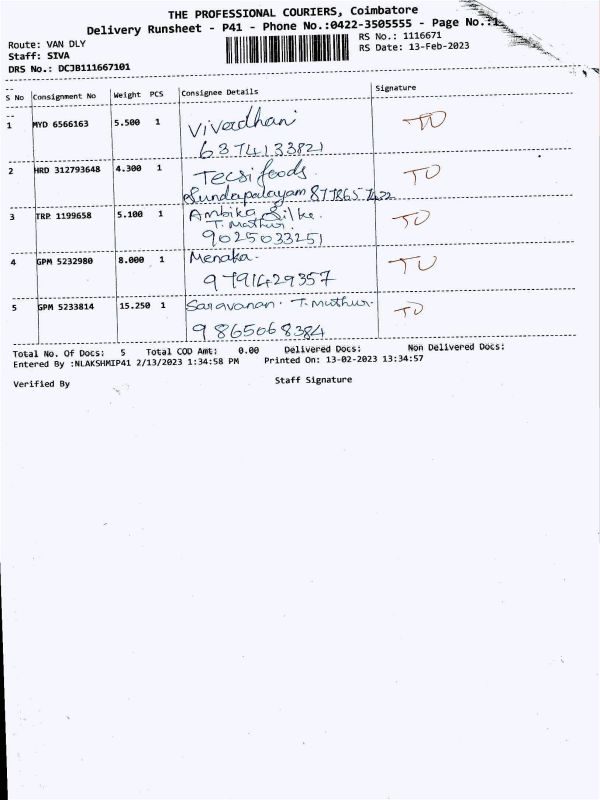 THE PROFESSIONAL COURIERS, Coimbatore
Delivery Runsheet - P41 - Phone No.:0422-3505555 - Page No.:1
Route: VAN DLY
Staff: SIVA
DRS No.: DCJB111667101
RS No.: 1116671
RS Date: 13-Feb-2023
S No Consignment No Weight PCS Consignee Details Signature
1 MYD 6566163 5.500 1 Vivardhani TO
6374133821
2 HRD 312793648 4.300 1 Tecsi foods. TO
Sundapalayam 8778657422
3 TRP 1199658 5.100 1 Ambika Silks. TO
T. Mathur.
9025033251
4 GPM 5232980 8.000 1 Menaka. TO
9791429357
5 GPM 5233814 15.250 1 Saravanan. T. Muthur. TO
9865068384
Total No. Of Docs: 5 Total COD Amt: 0.00 Delivered Docs: Non Delivered Docs:
Entered By :NLAKSHMIP41 2/13/2023 1:34:58 PM Printed On: 13-02-2023 13:34:57
Verified By Staff Signature